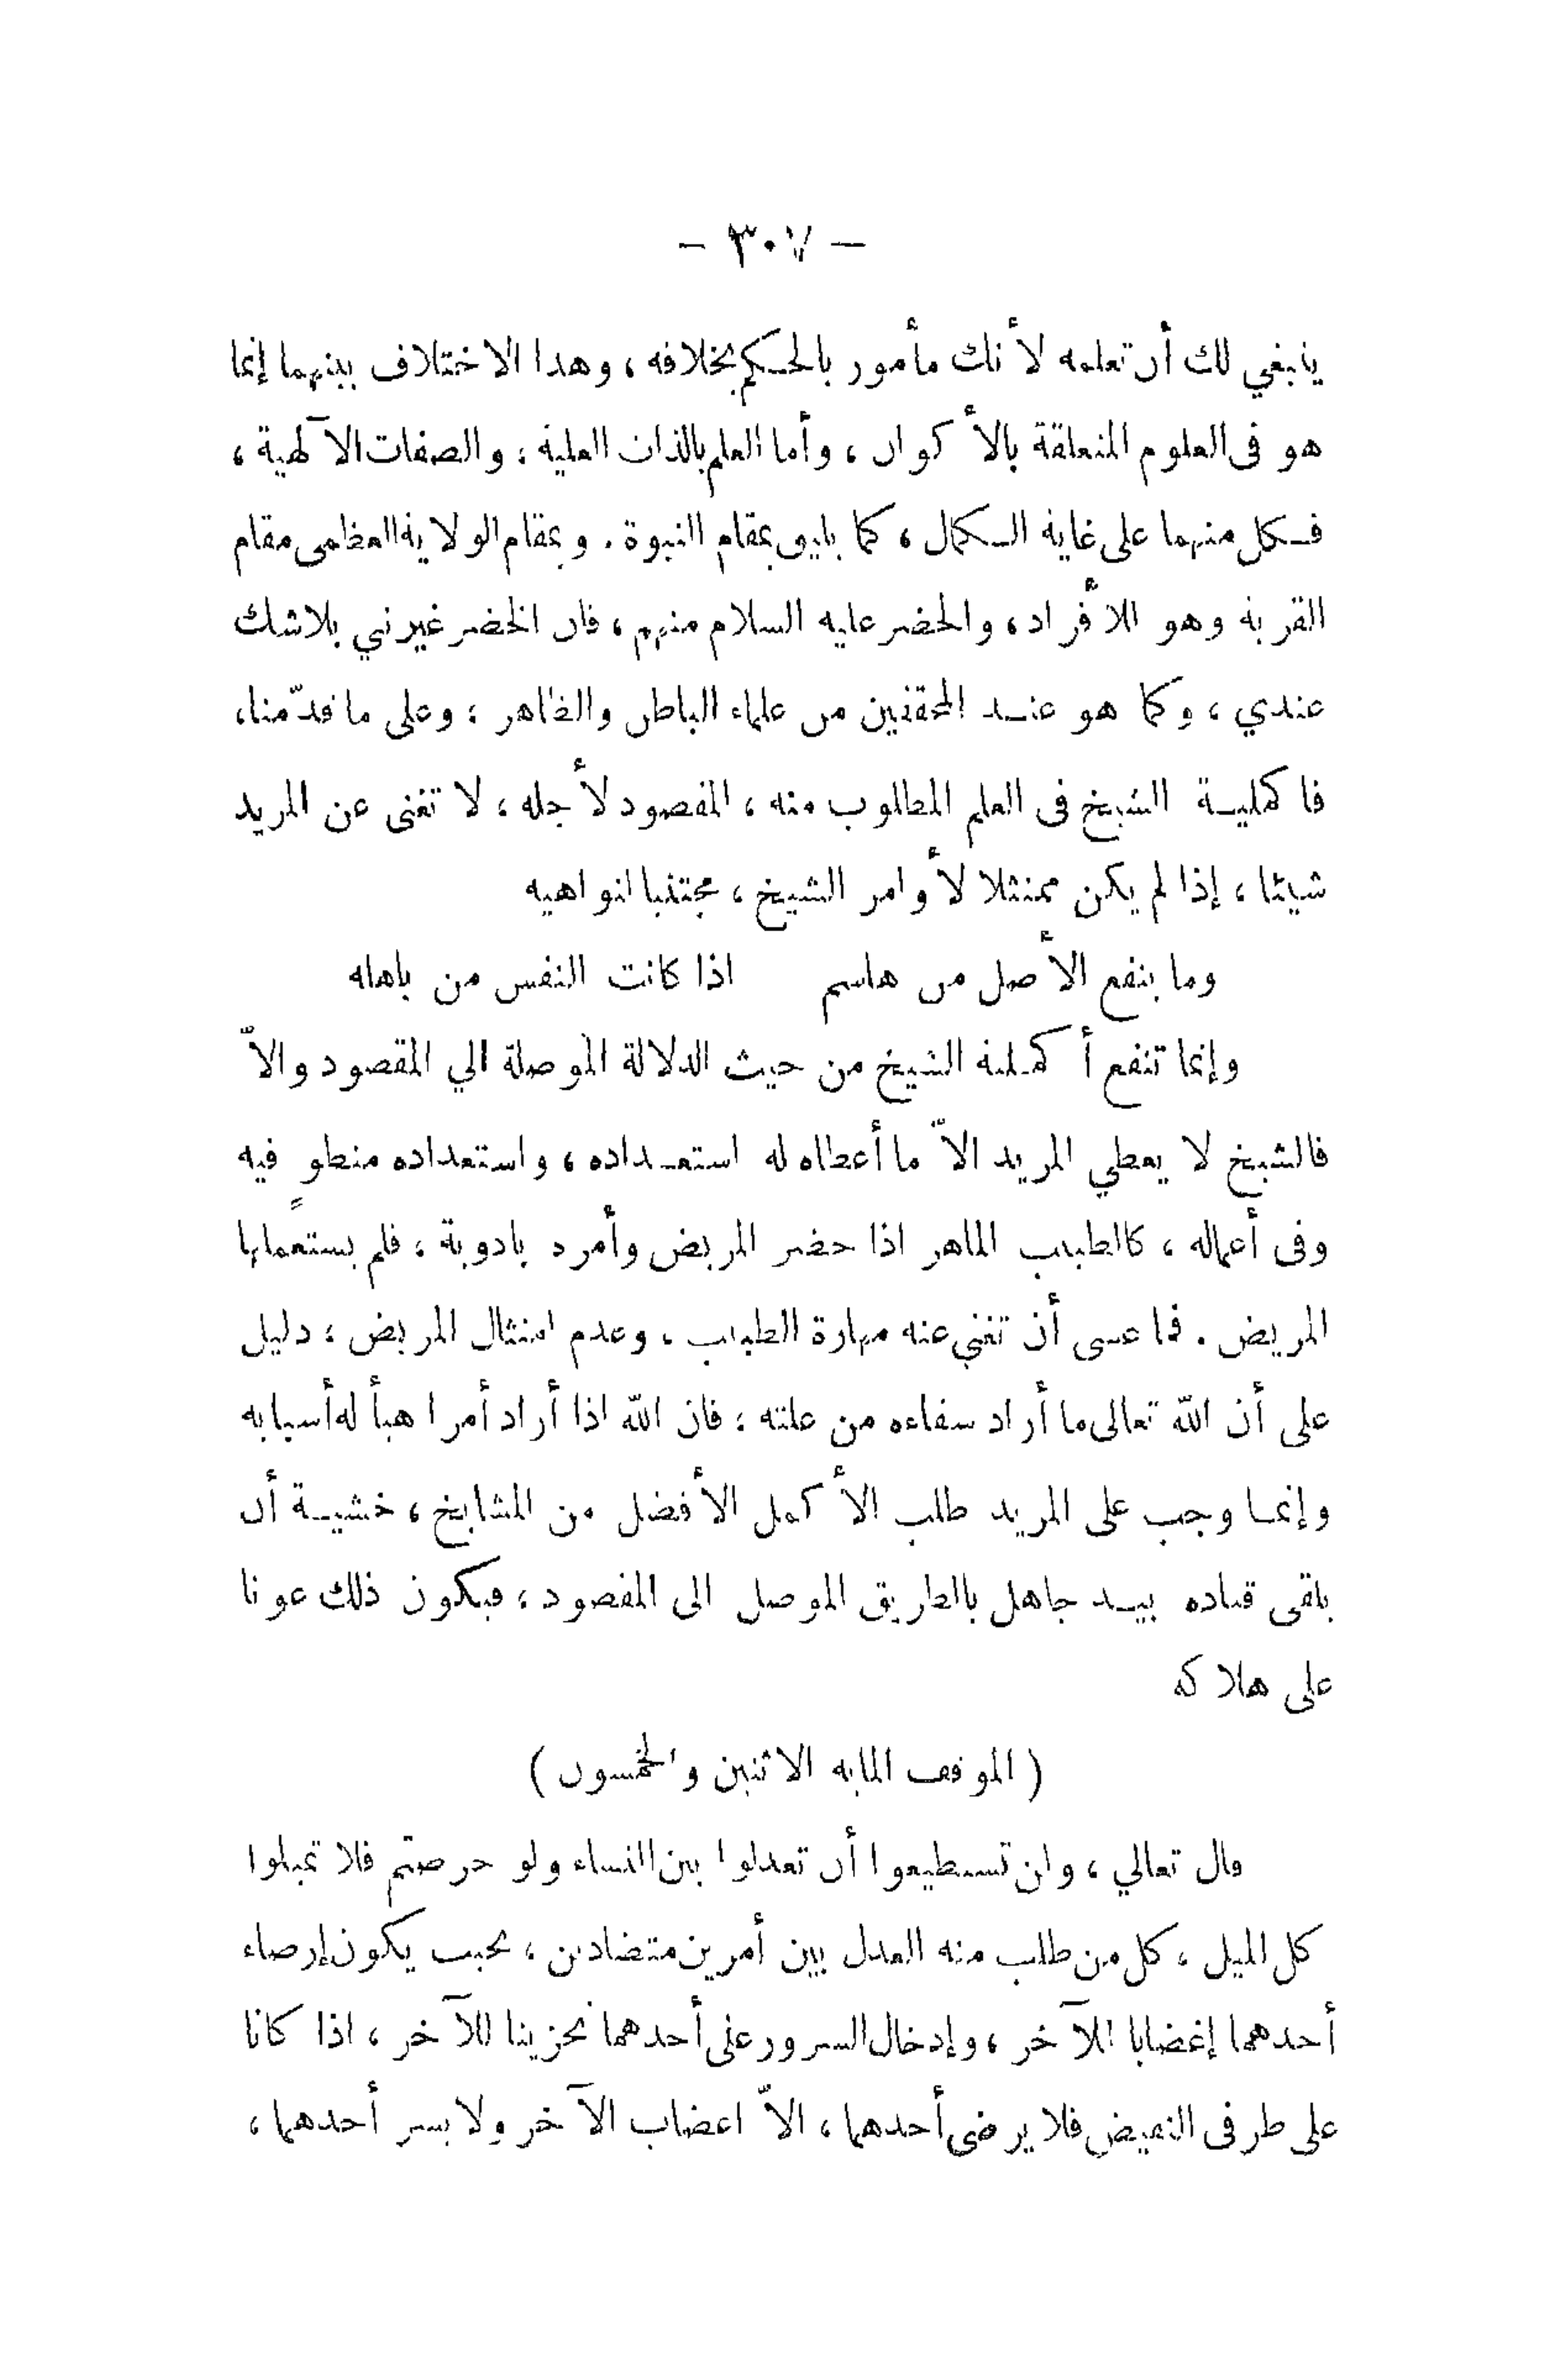 — ٣٠٧ —
ينبغي لك أن تعلمه لأنك مأمور بالحكم بخلافه ، وهذا الاختلاف بينهما إنما
هو فى العلوم المتعلقة بالأكوان ، وأما العلم بالذات العلية ، والصفات الآلهية ،
فكل منهما على غاية الكمال ، كما يليق بمقام النبوة . وبمقام الولاية العظمى مقام
القربة وهو للأفراد ، والخضر عليه السلام منهم ، فان الخضر غير نبي بلا شك
عندي ، وكما هو عند المحققين من علماء الباطن والظاهر ، وعلى ما قدّمنا ،
فاكملية الشيخ فى العلم المطلوب منه ، المقصود لأجله ، لا تغنى عن المريد
شيئا ، إذا لم يكن ممتثلا لأوامر الشيخ ، مجتنبا لنواهيه
وما ينفع الأصل من هاشم اذا كانت النفس من باهله
وإنما تنفع أكملية الشيخ من حيث الدلالة الموصلة الي المقصود والاّ
فالشيخ لا يعطي المريد الاّ ما أعطاه له استعداده ، واستعداده منطوٍ فيه
وفى أعماله ، كالطبيب الماهر اذا حضر المريض وأمره بادوية ، فلم يستعملها
المريض . فما عسى أن تغني عنه مهارة الطبيب ، وعدم امتثال المريض ، دليل
على أن الله تعالى ما أراد شفاءه من علته ، فان الله اذا أراد أمرا هيأ له أسبابه
وإنما وجب على المريد طلب الأكمل الأفضل من المشايخ ، خشية أن
يلقى قياده بيد جاهل بالطريق الموصل الى المقصود ، فيكون ذلك عونا
على هلاكه
( الموقف المايه الاثنين والخمسون )
قال تعالي ، ولن تستطيعوا أن تعدلوا بين النساء ولو حرصتم فلا تميلوا
كل الميل ، كل من طلب منه العدل بين أمرين متضادين ، بحيث يكون إرضاء
أحدهما إغضابا للآخر ، وإدخال السرور على أحدهما تحزينا للآخر ، اذا كانا
على طرفى النقيض فلا يرضى أحدهما ، الاّ اغضاب الآخر ولا يسر أحدهما ،